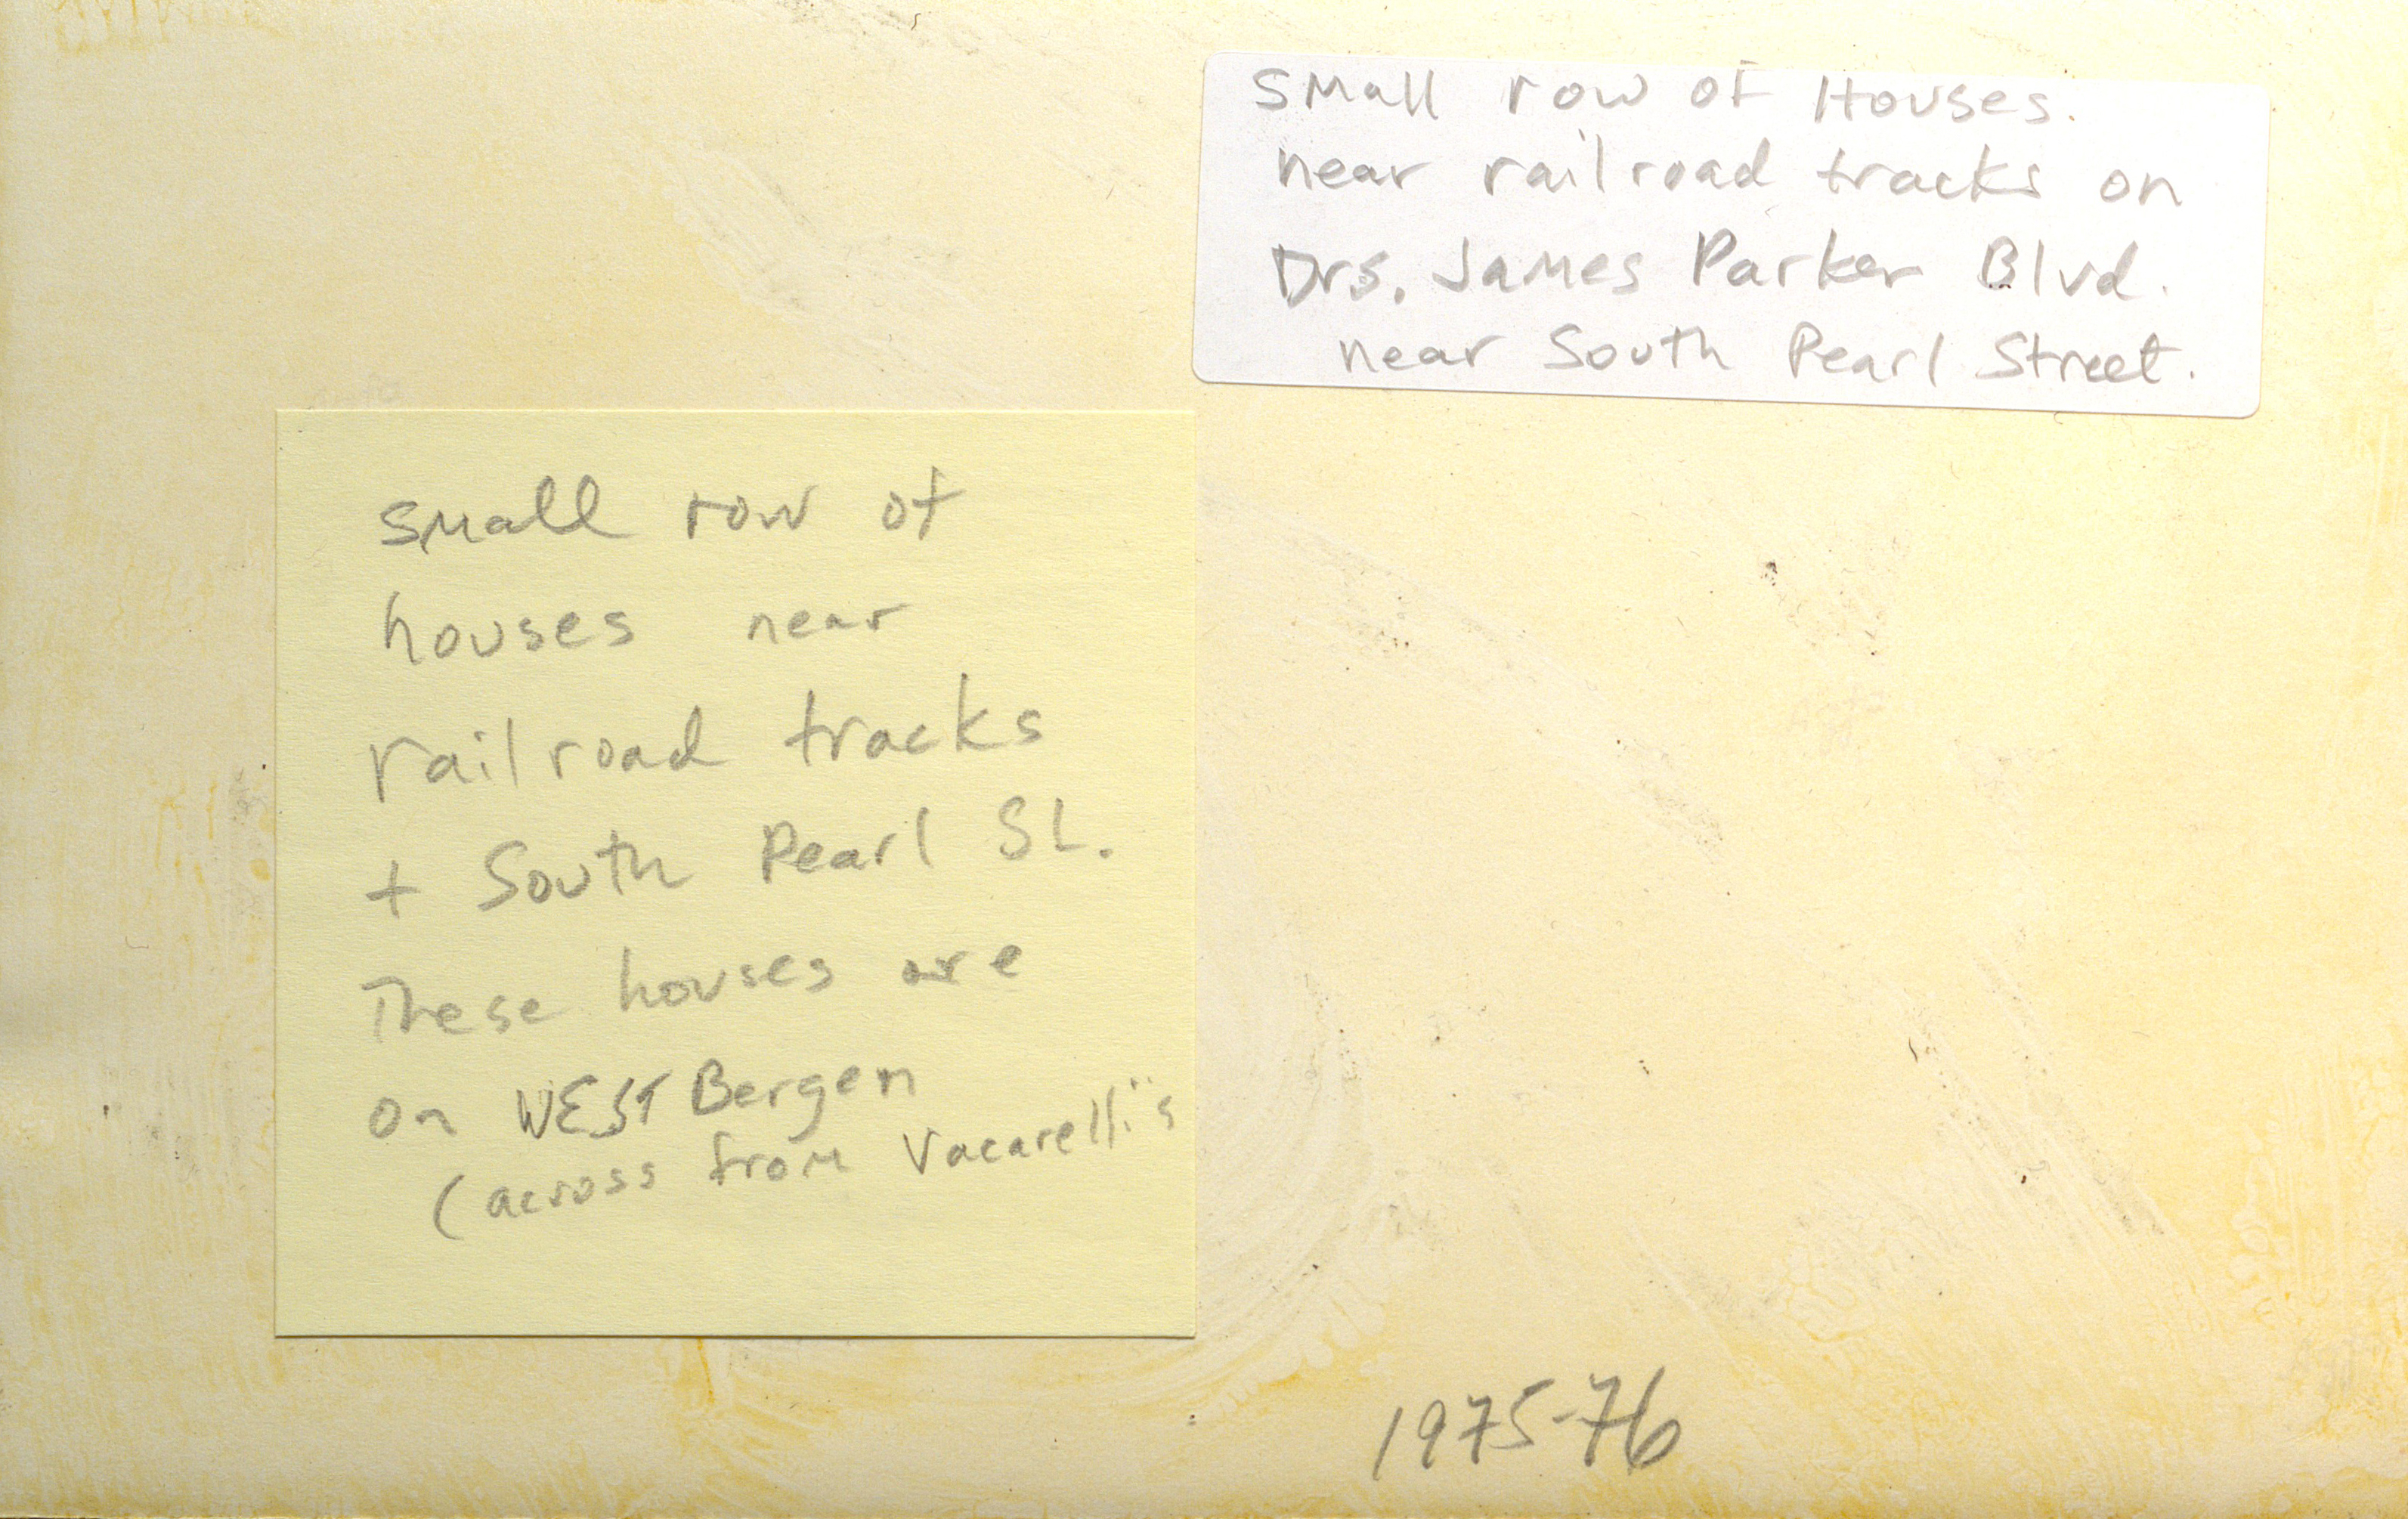 Small row of Houses.
near railroad tracks on
Drs. James Parker Blvd.
near South Pearl Street.
small row of
houses near
railroad tracks
+ South Pearl St.
These houses are
on WEST Bergen
(across from Vacarelli's
1975-76